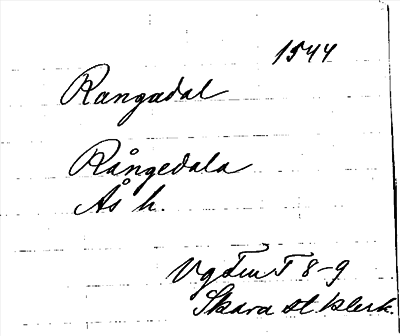 1544
Rangadal
Rångedala
Ås h.
Vg Fm T 8-9
Skara st klerk.